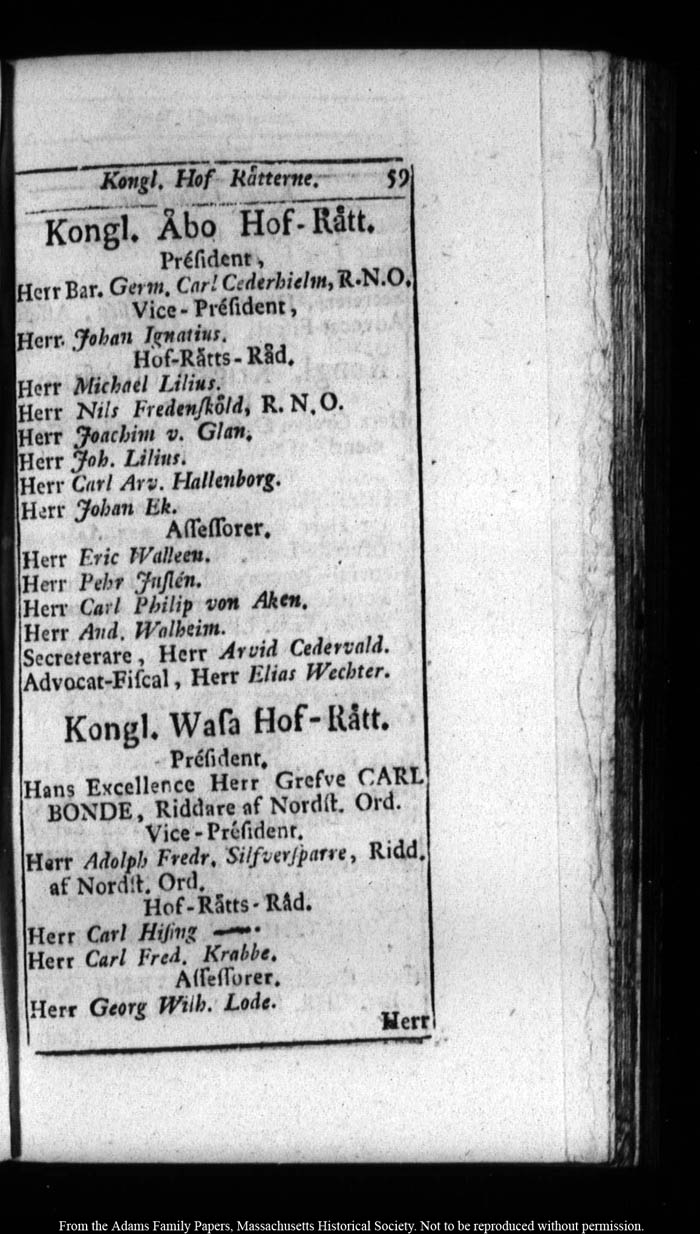 Kongl. Hof Råtterne. 59
Kongl. Åbo Hof-Rått.
Préſident,
Herr Bar. Germ. Carl Cederhielm, R.N.O.
Vice-Préſident,
Herr. Johan Ignatius.
Hof-Råtts-Råd.
Herr Michael Lilius.
Herr Nils Fredenſkôld, R. N. O.
Herr Joachim v. Glan.
Herr Joh. Lilius.
Herr Carl Arv. Hallenborg.
Herr Johan Ek.
Aſſeſſorer.
Herr Eric Walleen.
Herr Pehr Juſlén.
Herr Carl Philip von Aken.
Herr And. Walheim.
Secreterare, Herr Arvid Cedervald.
Advocat-Fiſcal, Herr Elias Wechter.
Kongl. Waſa Hof-Rått.
Préſident.
Hans Excellence Herr Grefve CARL
BONDE, Riddare af Nordſt. Ord.
Vice-Préſident.
Herr Adolph Fredr. Silfverſparre, Ridd.
af Nordſt. Ord.
Hof-Råtts-Råd.
Herr Carl Hiſing —.
Herr Carl Fred. Krabbe.
Aſſeſſorer.
Herr Georg Wilh. Lode.
Herr
From the Adams Family Papers, Massachusetts Historical Society. Not to be reproduced without permission.